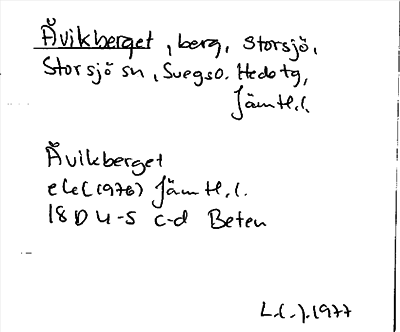 Åvikberget, berg, Storsjö,
Storsjö sn, Svegs o. Hede tg,
Jämtl.l.
Åvikberget
ekk (1976) Jämtl.l.
18D 4-5 c-d Beten
L.(-).1977